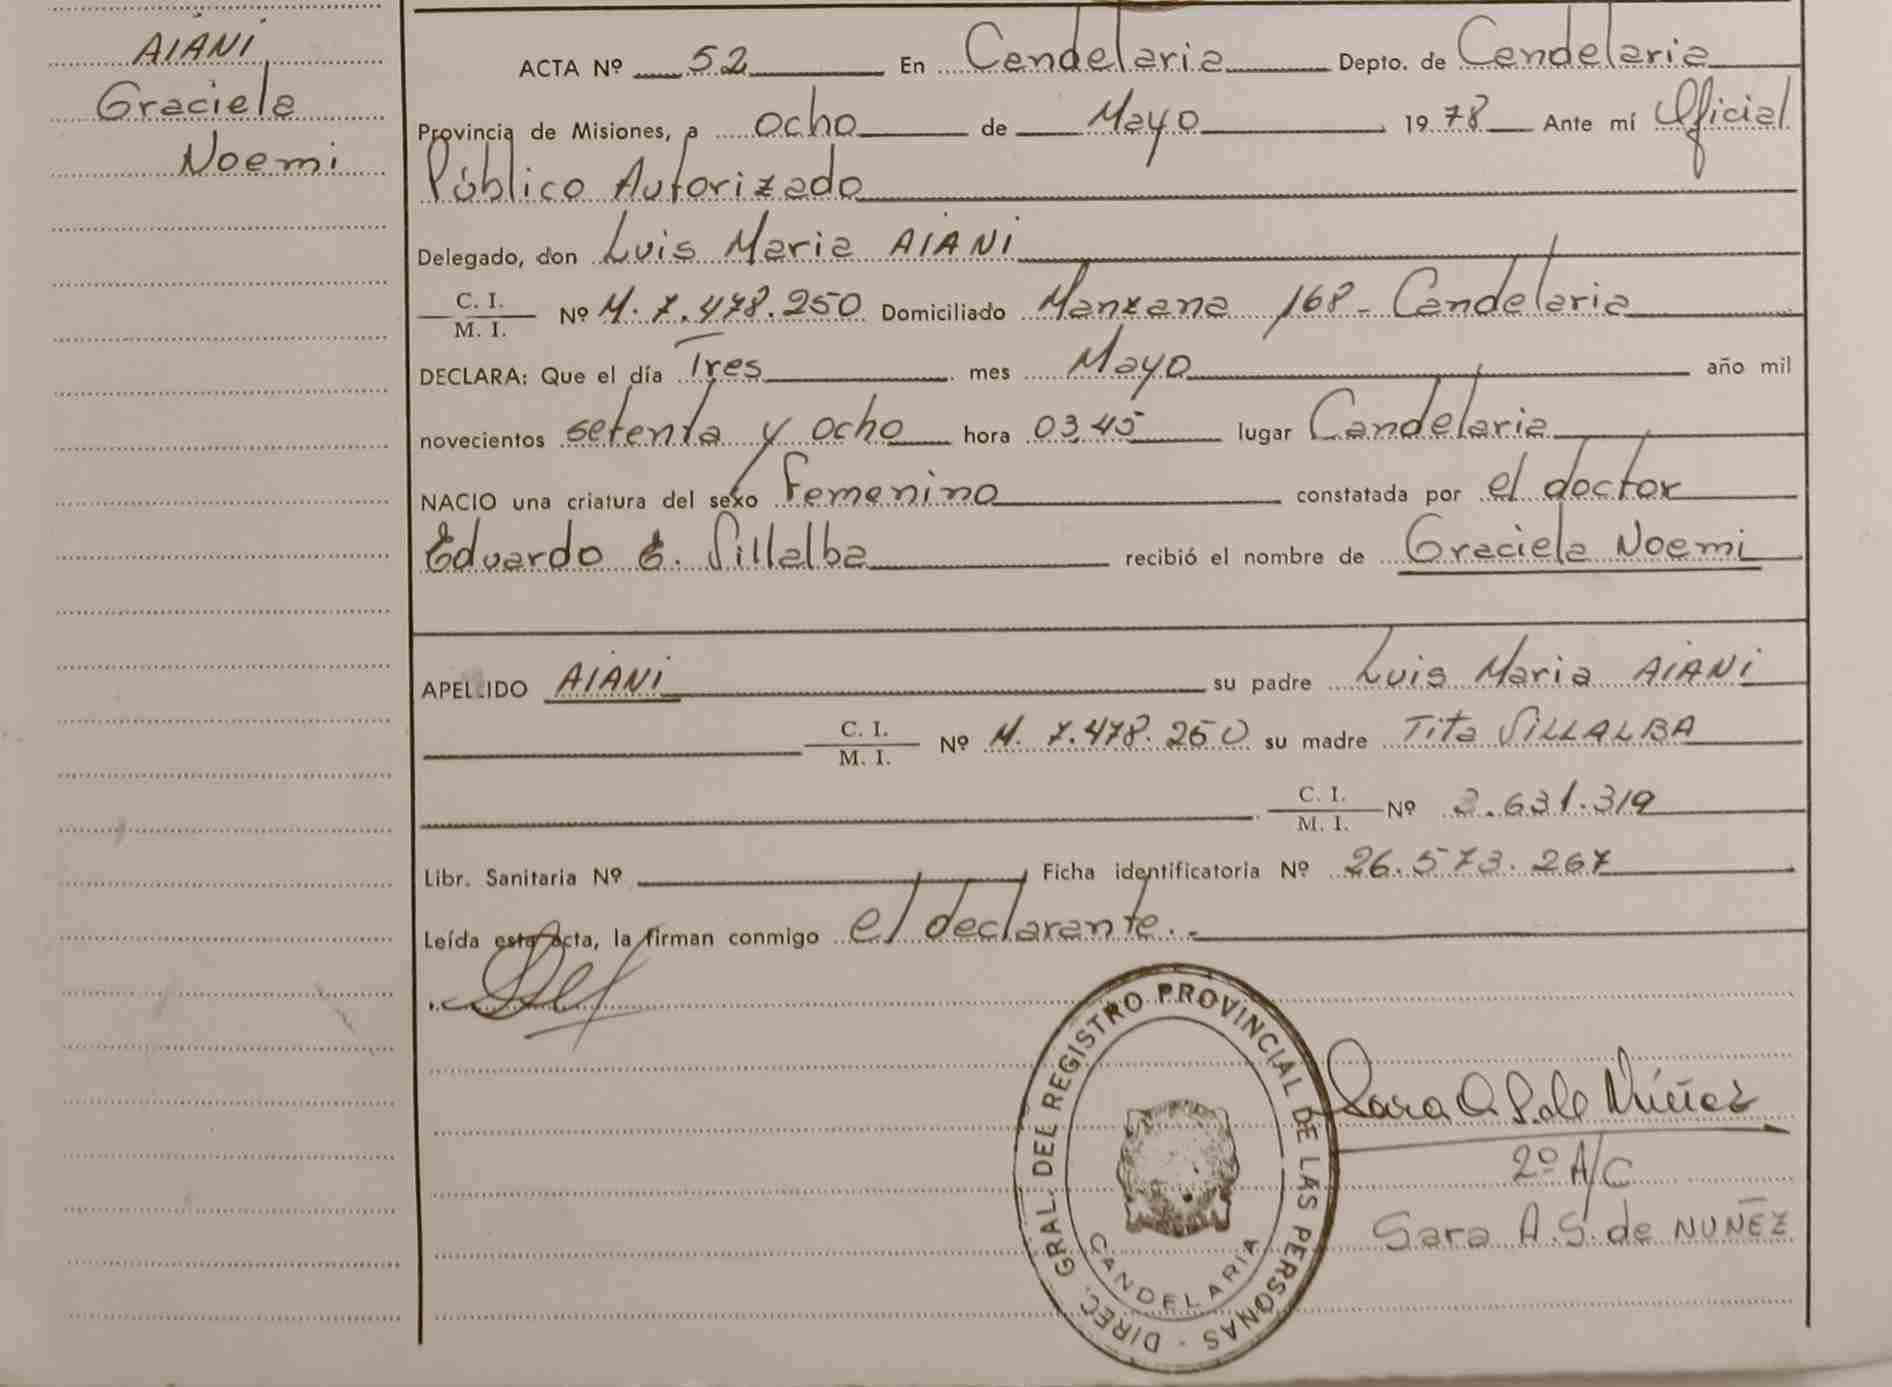 AIANI
Graciela
Noemi
ACTA Nº 52 En Candelaria Depto. de Candelaria
Provincia de Misiones, a ocho de Mayo 1978 Ante mí Oficial
Público Autorizado
Delegado, don Luis Maria AIANI
C. I.
M. I. Nº M. 7.478.250 Domiciliado Manzana 168 - Candelaria
DECLARA: Que el día Tres mes Mayo año mil
novecientos setenta y ocho hora 03,45 lugar Candelaria
NACIO una criatura del sexo Femenino constatada por el doctor
Eduardo E. Villalba recibió el nombre de Graciela Noemi
APELLIDO AIANI su padre Luis Maria AIANI
C. I.
M. I. Nº M. 7.478.250 su madre Tita VILLALBA
C. I.
M. I. Nº 3.631.319
Libr. Sanitaria Nº Ficha identificatoria Nº 26.573.267
Leída esta acta, la firman conmigo el declarante.-
DIREC. GRAL. DEL REGISTRO PROVINCIAL DE LAS PERSONAS -
CANDELARIA
Sara A. S. de Núñez
2º A/C
Sara A.S. de NUÑEZ